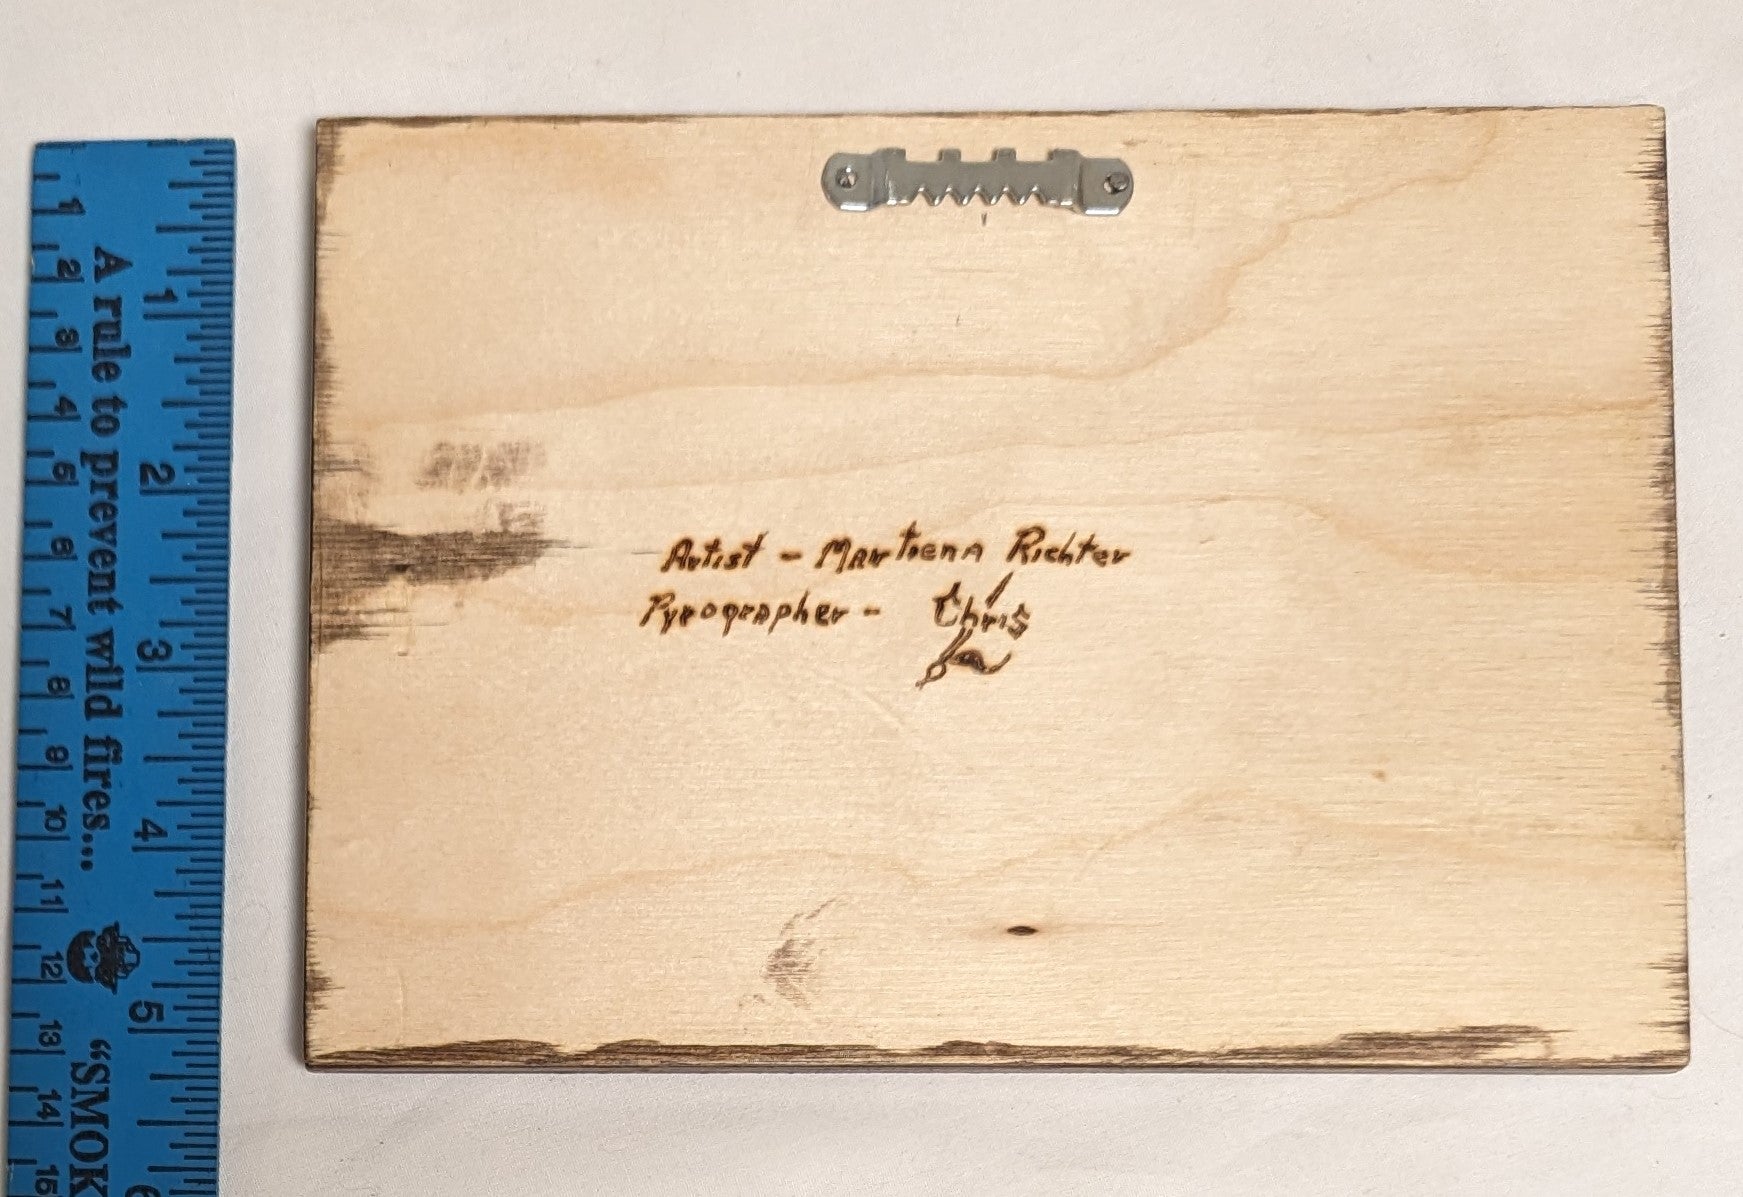 Artist - Martiena Richter
Pyrographer - Chris
A rule to prevent wild fires.... "SMOK
1
2
3
4
5
6
1
2
3
4
5
6
7
8
9
10
11
12
13
14
15